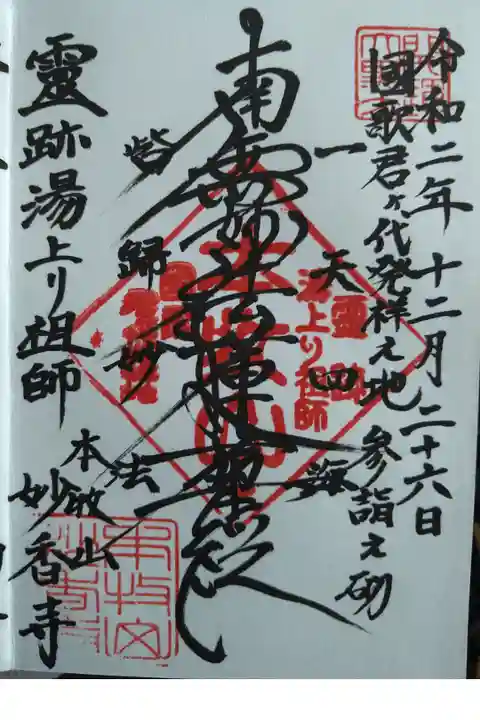 令和二年十二月二十六日
国歌君ヶ代発祥之地参詣之砌
一天四海
南無妙法蓮華経
皆歸妙法
霊跡
湯上り祖師
靈跡湯上り祖師
本牧山
妙香寺